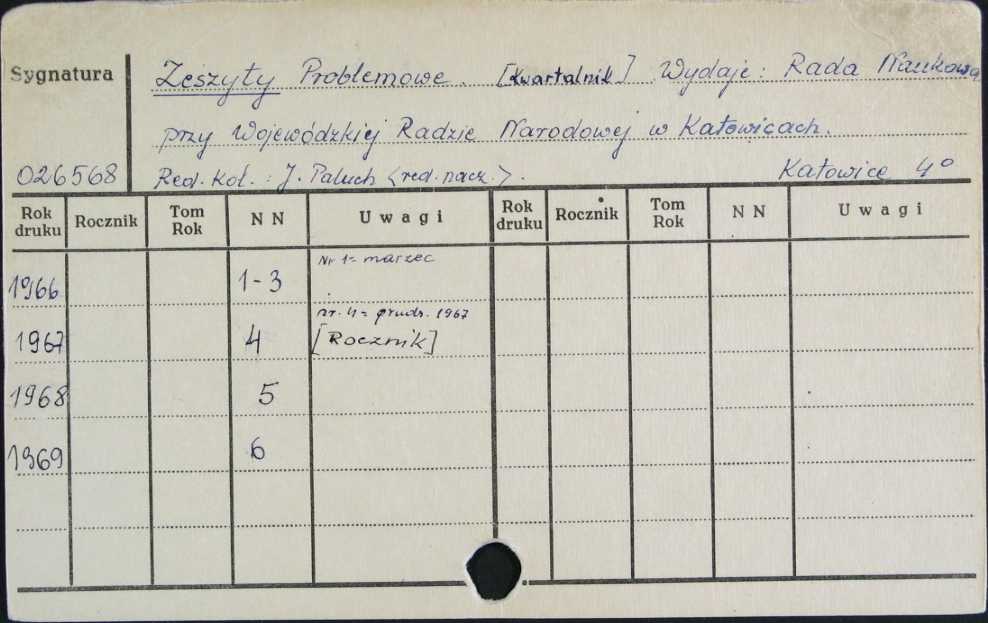 Sygnatura
Zeszyty Problemowe. [Kwartalnik] Wydaje: Rada Naukowa
przy Wojewódzkiej Radzie Narodowej w Katowicach.
026568 Red. kol.: J. Paluch <red. nacz.>. Katowice 4°
Rok druku Rocznik Tom Rok NN Uwagi Rok druku Rocznik Tom Rok NN Uwagi
Nr 1= marzec
1966 1-3
nr. 4= grudz. 1967
1967 4 [Rocznik]
1968 5
1969 6